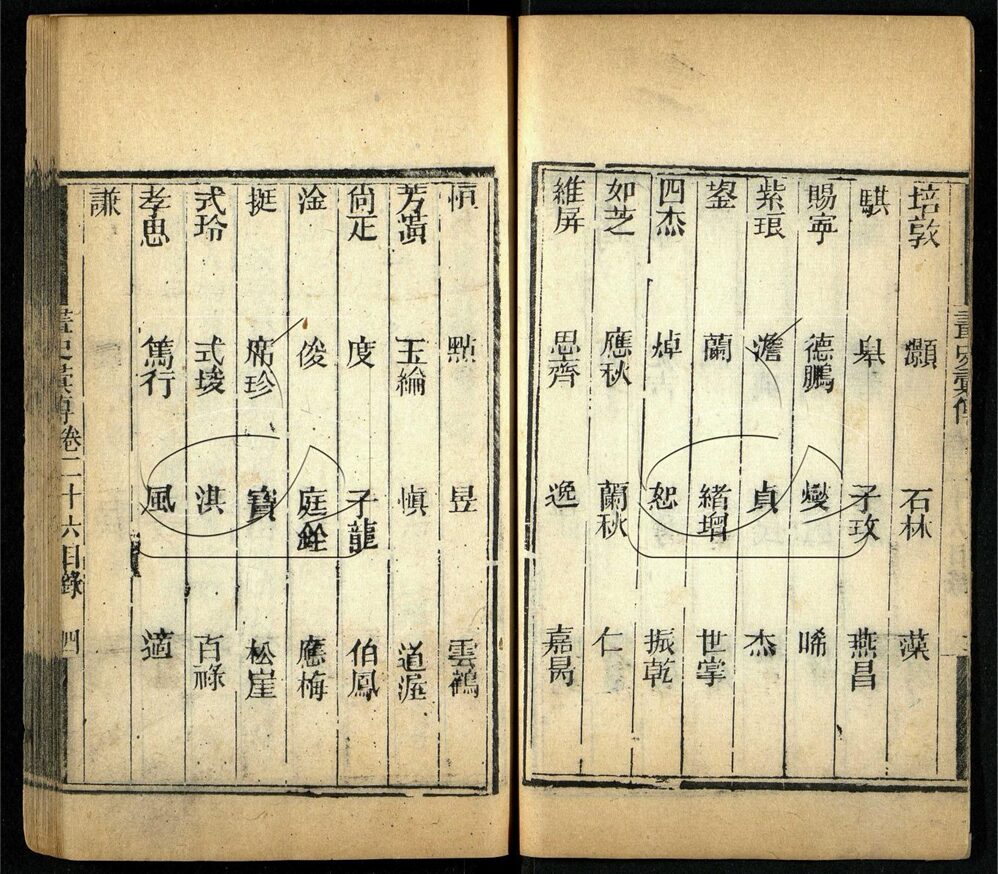 培敦 灝 石林 蓂
騏 皋 子玫 燕昌
賜寧 德鵬 燮 唏
紫琅 澹 貞 杰
鋆 蘭 緒增 世掌
四杰 焯 恕 振乾
如芝 應秋 蘭秋 仁
維屏 思齊 逸 嘉昺
畫史彙傳
恒 點 昱 雲鶴
芳蕆 玉綸 慎 道渥
尙疋 度 子龍 伯鳳
淦 俊 庭銓 應梅
挺 席珍 寶 松崖
式玲 式埈 淇 百祿
孝思 篤行 風 適
謙
畫史彙傳卷二十六目錄 四